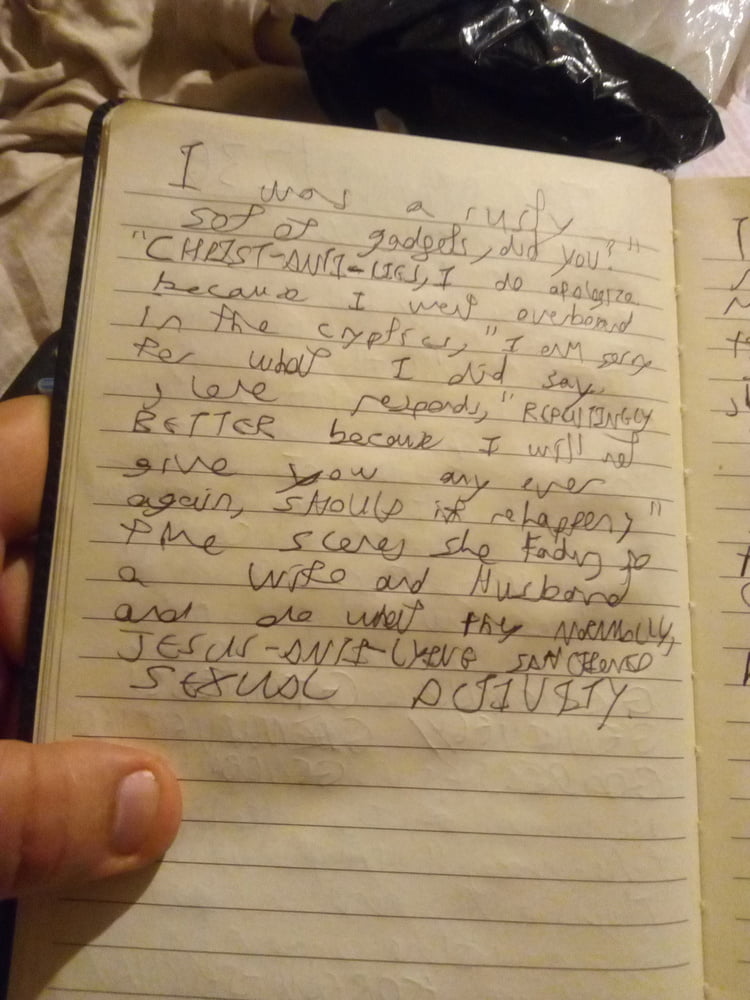 I was a rusty
set of gadgets, did you?"
"CHRIST-ANTI-LIES, I do apologize
because I went overboard
In the cryptics, "I am sorry
for what I did say,
responds, "
BETTER because I will not
give you any ever
again, SHOULD it rehappen,"
the scenes she fading to
a wife and Husband
and do what they NORMALLY,
JESUS-ANTI-LYING SANCTIONED
SEXUAL ACTIVITY.